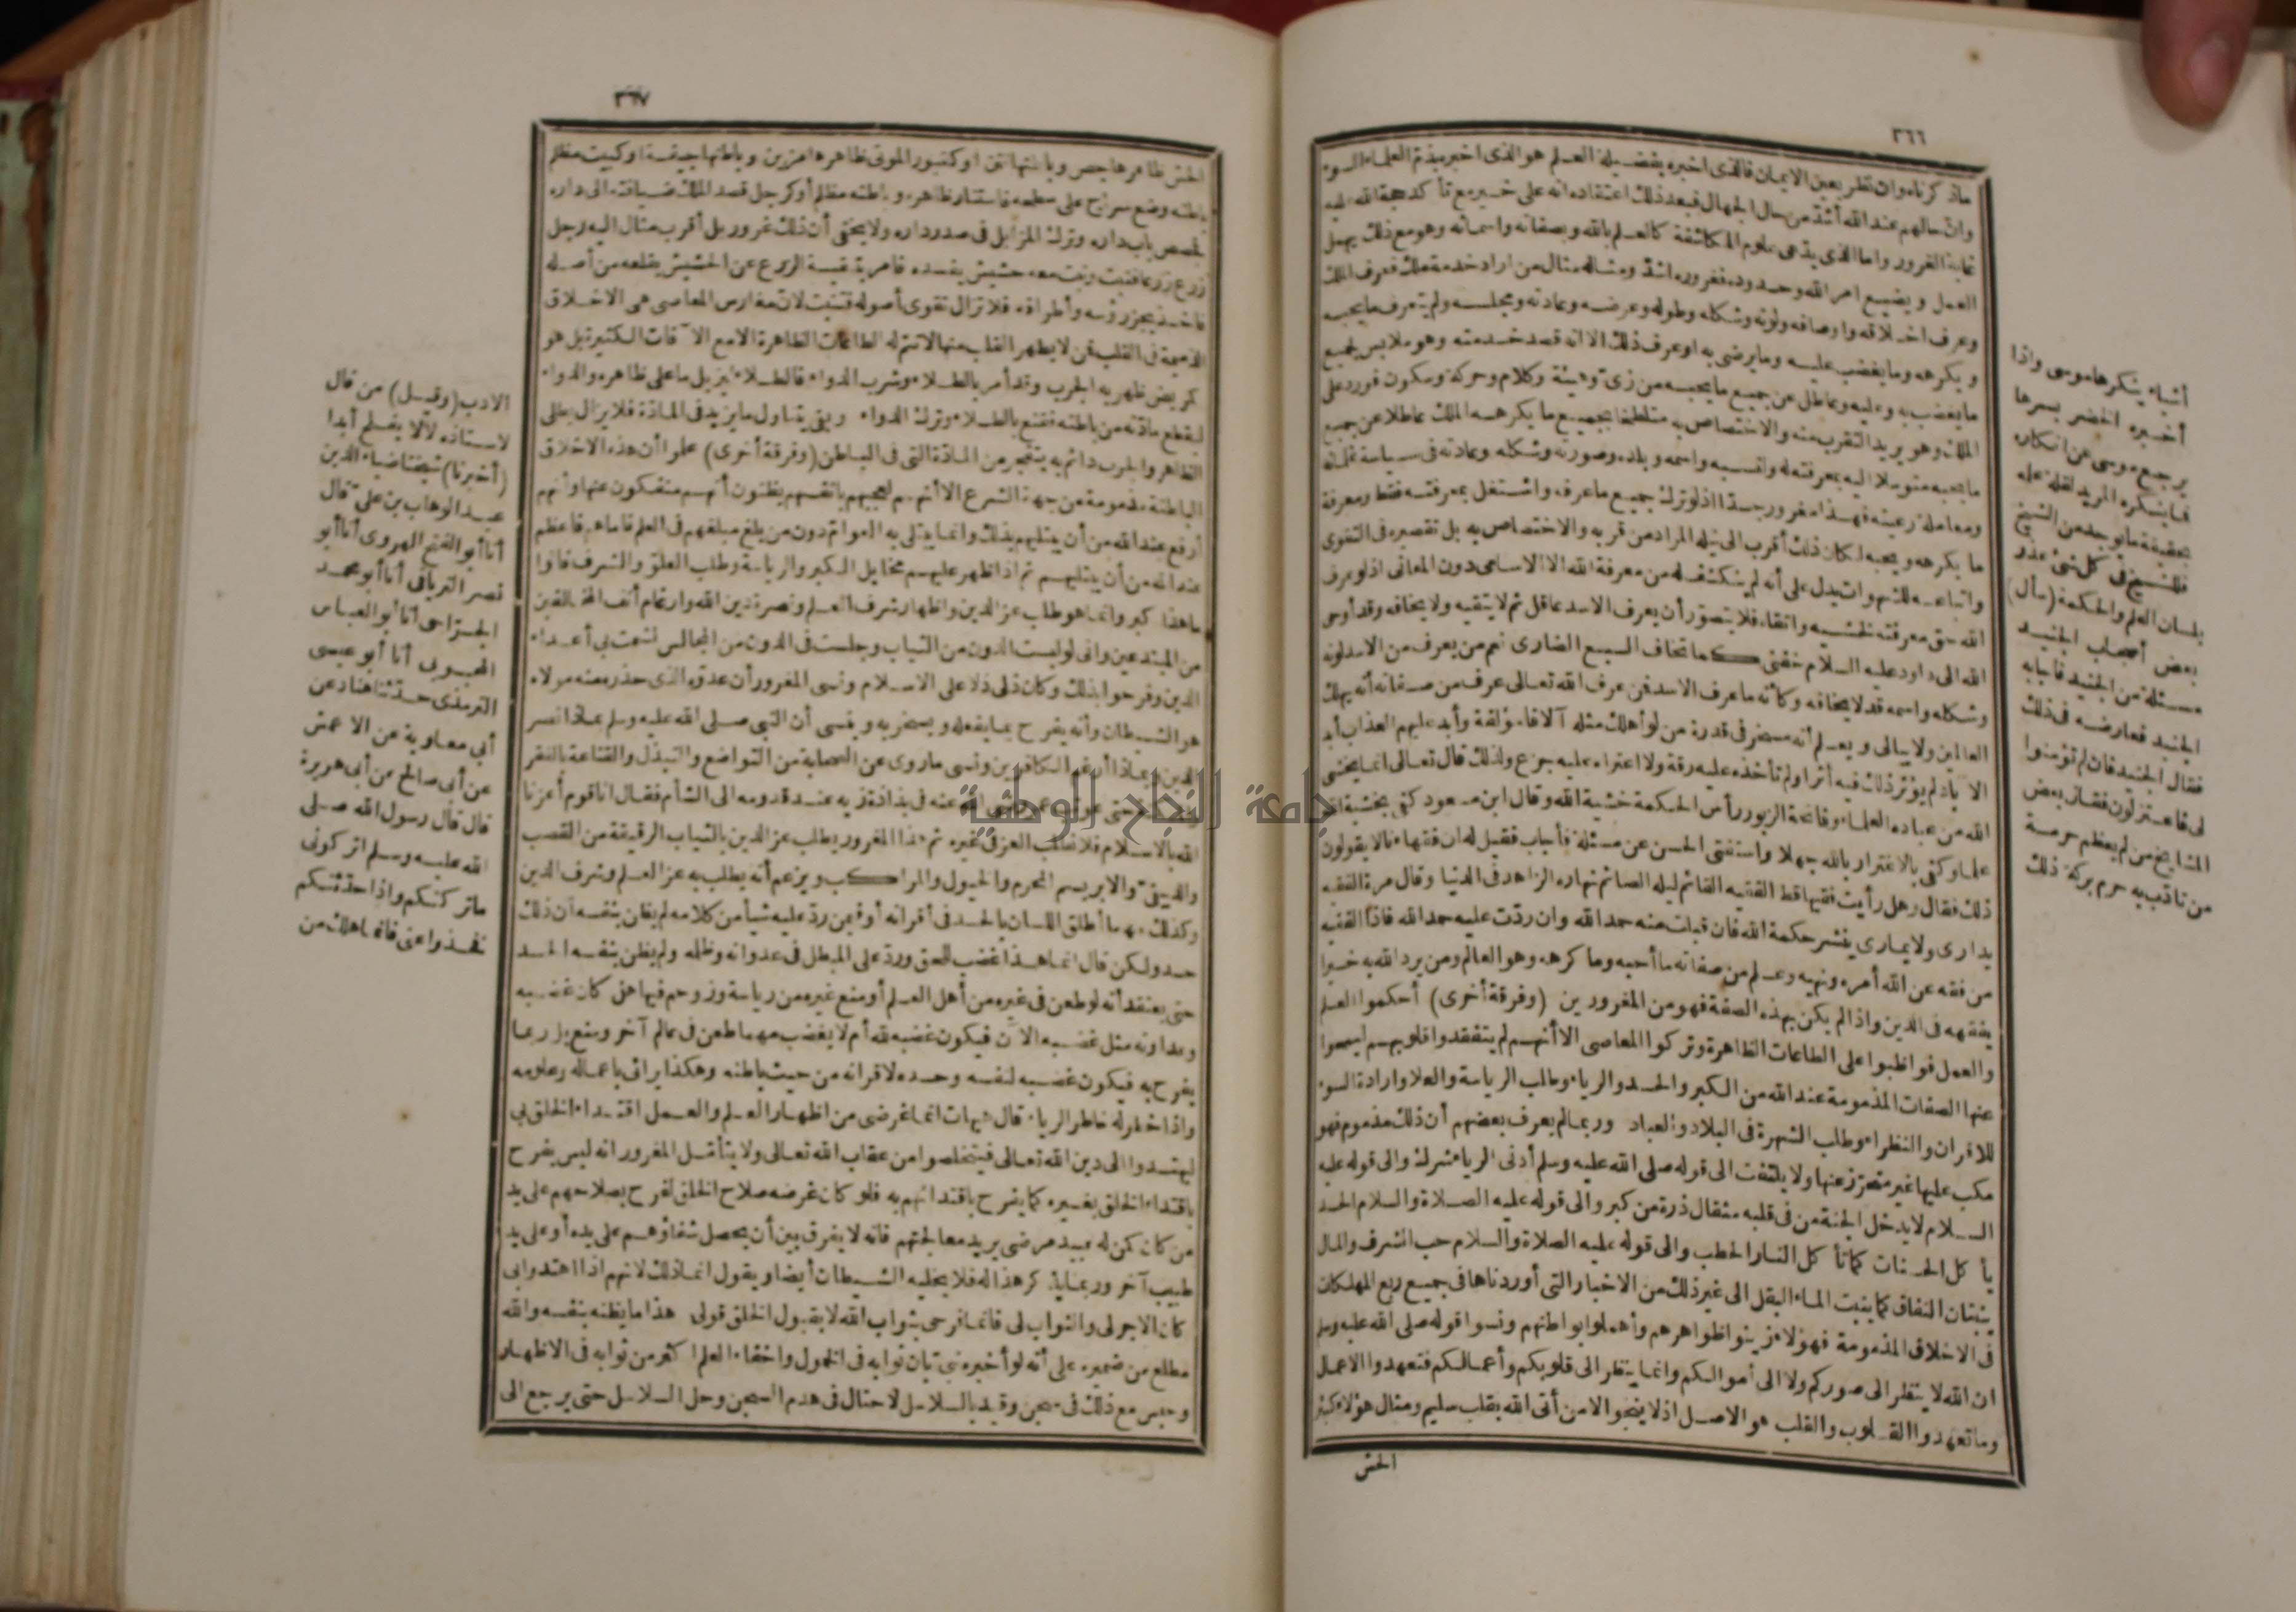 ٣٦٦
ماذكرناه وان نظر بعين الايمان فالذى اخبره بفضيلة العلم هو الذى اخبر بذم العلماء السوء
وان حالهم عند الله أشد من حال الجهال فبعد ذلك اعتقاده انه على خير مع تأكد حجة الله عليه
غاية الغرور واما الذى يدعى علوم المكاشفة كالعلم بالله وبصفاته واسمائه وهو مع ذلك يهمل
العمل ويضيع امر الله وحدوده فغروره اشد ومثاله مثال من اراد خدمة ملك فعرف الملك
وعرف اخلاقه واوصافه ولونه وشكله وطوله وعرضه وعادته ومجلسه ولم يتعرف ما يحبه
ويكرهه وما يغضب عليه وما يرضى به او عرف ذلك الا انه قصد خدمته وهو ملابس لجميع
ما يغضب به وعليه وعاطل عن جميع ما يحبه من زى وهيئة وكلام وحركة وسكون فورد على
الملك وهو يريد التقرب منه والاختصاص به متلطخا بجميع ما يكرهه الملك عاطلا عن جميع
ما يحبه متوسلا اليه بمعرفته له ولنسبه واسمه وبلده وصورته وشكله وعادته فى سياسة غلمانه
ومعاملة رعيته فهذا مغرور جدا اذ لو ترك جميع ما عرفه واشتغل بمعرفته فقط ومعرفة
ما يكرهه ويحبه لكان ذلك أقرب الى نيله المراد من قربه والاختصاص به بل تقصيره فى التقوى
واتباعه للشهوات يدل على أنه لم ينكشف له من معرفة الله الا الاسامى دون المعانى اذ لو عرف
الله حق معرفته لخشيه واتقاه فلا يتصور أن يعرف الاسد عاقل ثم لا يتقيه ولا يخافه وقد أوحى
الله الى داود عليه السلام خفنى كما تخاف السبع الضارى نعم من يعرف من الاسد لونه
وشكله واسمه قد لا يخافه وكأنه ما عرف الاسد فمن عرف الله تعالى عرف من صفاته أنه يهلك
العالمين ولا يبالى ويعلم أنه مسخر فى قدرة من لو أهلك مثله آلافا مؤلفة وأبد عليهم العذاب أبد
الآباد لم يؤثر ذلك فيه أثرا ولم تأخذه عليه رقة ولا اعتراه عليه جزع ولذلك قال تعالى انما يخشى
الله من عباده العلماء وفاتحة الزبور رأس الحكمة خشية الله وقال ابن مسعود كفى بخشية الله
علما وكفى بالاغترار بالله جهلا واستفتى الحسن عن مسئلة فأجاب فقيل له ان فقهاءنا لا يقولون
ذلك فقال وهل رأيت فقيها قط الفقيه القائم ليله الصائم نهاره الزاهد فى الدنيا وقال مرة الفقيه
يدارى ولا يمارى ينشر حكمة الله فان قبلت منه حمد الله وان ردت عليه حمد الله فاذا الفقيه
من فقه عن الله أمره ونهيه وعلم من صفاته ما أحبه وما كرهه وهو العالم ومن يرد الله به خيرا
يفقهه فى الدين واذا لم يكن بهذه الصفة فهو من المغرورين (وفرقة أخرى) أحكموا العلم
والعمل فواظبوا على الطاعات الظاهرة وتركوا المعاصى الا أنهم لم يتفقدوا قلوبهم ليمحوا
عنها الصفات المذمومة عند الله من الكبر والحسد والرياء وطلب الرياسة والعلا وارادة السوء
للاقران والنظراء وطلب الشهرة فى البلاد والعباد وربما لم يعرف بعضهم أن ذلك مذموم فهو
مكب عليها غير متحرز عنها ولا يلتفت الى قوله صلى الله عليه وسلم أدنى الرياء شرك والى قوله عليه
السلام لا يدخل الجنة من فى قلبه مثقال ذرة من كبر والى قوله عليه الصلاة والسلام الحسد
يأكل الحسنات كما تأكل النار الحطب والى قوله عليه الصلاة والسلام حب الشرف والمال
ينبتان النفاق كما ينبت الماء البقل الى غير ذلك من الاخبار التى أوردناها فى جميع ربع المهلكات
فى الاخلاق المذمومة فهؤلاء زينوا ظواهرهم وأهملوا بواطنهم ونسوا قوله صلى الله عليه وسلم
ان الله لا ينظر الى صوركم ولا الى أموالكم وانما ينظر الى قلوبكم وأعمالكم فتعهدوا الاعمال
وما تعهدوا القلوب والقلب هو الاصل اذ لا ينجو الا من أتى الله بقلب سليم ومثال هؤلاء كبئر
الحش
أشياء ينكرها موسى واذا
أخبره الخضر بسرها
يرجع موسى عن انكاره
فما ينكره المريد لقلة علمه
بحقيقة ما يوجد من الشيخ
فللشيخ فى كل شئ عذر
بلسان العلم والحكمة (سأل)
بعض أصحاب الجنيد
مسئلة من الجنيد فأجابه
الجنيد فعارضه فى ذلك
فقال الجنيد فان لم تؤمنوا
لى فاعتزلون فقال بعض
المشايخ من لم يعظم حرمة
من تأدب به حرم بركة ذلك
٣٦٧
الحش ظاهرها جص وباطنها نتن أو كقبور الموتى ظاهرها مزين وباطنها جيفة أو كبيت مظلم
باطنه وضع سراج على سطحه فاستنار ظاهره وباطنه مظلم أو كرجل قصد الملك ضيافته الى داره
فجصص باب داره وترك المزابل فى صدر داره ولا يخفى أن ذلك غرور بل أقرب مثال اليه رجل
زرع زرعا فنبت ونبت معه حشيش يفسده فأمر بتنقية الزرع عن الحشيش بقلعه من أصله
فأخذ يجز رؤسه وأطرافه فلا تزال تقوى أصوله فتنبت لان مغارس المعاصى هى الاخلاق
الذميمة فى القلب فمن لا يطهر القلب منها لا تتم له الطاعات الظاهرة الا مع الآفات الكثيرة بل هو
كمريض ظهر به الجرب وقد أمر بالطلاء وشرب الدواء فالطلاء ليزيل ما على ظاهره والدواء
ليقطع مادته من باطنه فقنع بالطلاء وترك الدواء وبقى يتناول ما يزيد فى المادة فلا يزال يطلى
الظاهر والجرب دائم به يتفجر من المادة التى فى الباطن (وفرقة أخرى) علموا أن هذه الاخلاق
الباطنة مذمومة من جهة الشرع الا أنهم لعجبهم بأنفسهم يظنون أنهم منفكون عنها وأنهم
أرفع عند الله من أن يبتليهم بذلك وانما يبتلى به العوام دون من بلغ مبلغهم فى العلم فأما هم فأعظم
عند الله من أن يبتليهم ثم اذا ظهر عليهم مخايل الكبر والرياسة وطلب العلو والشرف قالوا
ما هذا كبر وانما هو طلب عز الدين واظهار شرف العلم ونصرة دين الله وارغام أنف المخالفين
من المبتدعين وانى لو لبست الدون من الثياب وجلست فى الدون من المجالس لشمت بى أعداء
الدين وفرحوا بذلك وكان ذلى ذلا على الاسلام ونسى المغرور أن عدوه الذى حذره منه مولاه
هو الشيطان وأنه يفرح بما يفعله ويسخر به وينسى أن النبى صلى الله عليه وسلم بماذا نصر
الدين وبماذا أرغم الكافرين ونسى ماروى عن الصحابة من التواضع والتبذل والقناعة بالفقر
حتى عوتب عمر رضى الله عنه فى بذاذة زيه عند قدومه الى الشأم فقال انا قوم أعزنا
الله بالاسلام فلا نطلب العز فى غيره ثم هذا المغرور يطلب عز الدين بالثياب الرقيقة من القصب
والدبيقى والابريسم المحرم والخيول والمراكب ويزعم أنه يطلب به عز العلم وشرف الدين
وكذلك مهما أطلق اللسان بالحسد فى أقرانه أو فيمن رد عليه شيأ من كلامه لم يظن بنفسه أن ذلك
حسد ولكن قال انما هذا غضب للحق ورد على المبطل فى عدوانه وظلمه ولم يظن بنفسه الحسد
حتى يعتقد أنه لو طعن فى غيره من أهل العلم أو منع غيره من رياسة وزوحم فيها هل كان غضبه
وعداوته مثل غضبه الآن فيكون غضبه لله أم لا يغضب مهما طعن فى عالم آخر ومنع بل ربما
يفرح به فيكون غضبه لنفسه وحسده لاقرانه من خبث باطنه وهكذا يرائى باعماله وعلومه
واذا خطر له خاطر الرياء قال هيهات انما غرضى من اظهار العلم والعمل اقتداء الخلق بى
ليهتدوا الى دين الله تعالى فيتخلصوا من عقاب الله تعالى ولا يتأمل المغرور انه ليس يفرح
باقتداء الخلق بغيره كما يفرح باقتدائهم به فلو كان غرضه صلاح الخلق لفرح بصلاحهم على يد
من كان كمن له عبيد مرضى يريد معالجتهم فانه لا يفرق بين أن يحصل شفاؤهم على يده أو على يد
طبيب آخر وربما يذكر هذا له فلا يخليه الشيطان أيضا ويقول انما ذلك لانهم اذا اهتدوا بى
كان الاجر لى والثواب لى فانما فرحى بثواب الله لا بقبول الخلق قولى هذا ما يظنه بنفسه والله
مطلع من ضميره على أنه لو أخبره نبى بان ثوابه فى الخمول واخفاء العلم أكثر من ثوابه فى الاظهار
وحبس مع ذلك فى سجن وقيد بالسلاسل لاحتال فى هدم السجن وحل السلاسل حتى يرجع الى
الادب (وقيل) من قال
لاستاذه لا لا يفلح أبدا
(أخبرنا) شيخنا ضياء الدين
عبد الوهاب بن على قال
أنا أبو الفتح الهروى أنا أبو
نصر الترياقى أنا أبو محمد
الجراحى أنا أبو العباس
المحبوبى أنا أبو عيسى
الترمذى حدثنا هناد عن
أبى معاوية عن الاعمش
عن أبى صالح عن أبى هريرة
قال قال رسول الله صلى
الله عليه وسلم اتركونى
ما تركتكم واذا حدثتكم
فخذوا عنى فانما هلك من
جامعة النجاح الوطنية